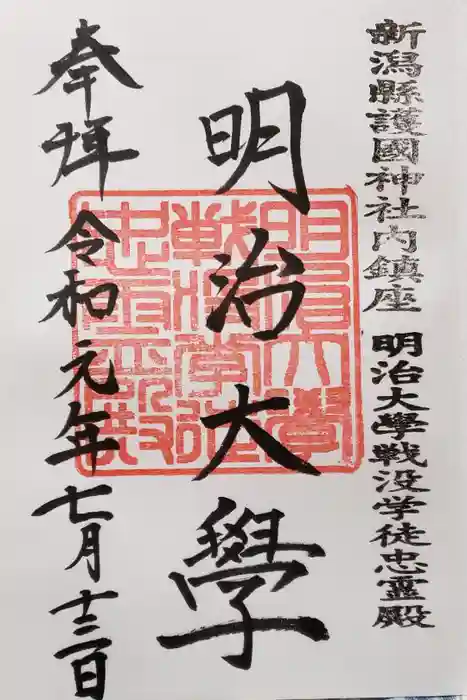 新潟縣護國神社内鎮座 明治大學戦没学徒忠靈殿
明治大學
奉拝 令和元年七月十三日
明治大學
戦没学徒
忠霊殿